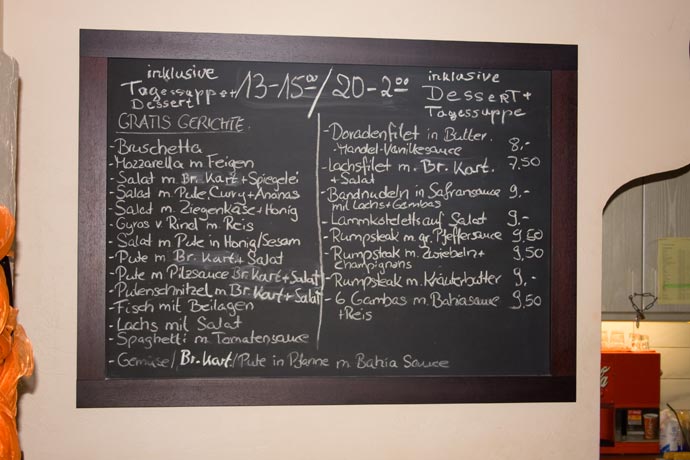 inklusive
Tagessuppe+
Dessert
13-15⁰⁰/20-2⁰⁰
inklusive
DESSERT+
Tagessuppe
GRATIS GERICHTE.
-Bruschetta
-Mozzarella m Feigen
-Salat m. Br. Kart + Spiegelei
-Salat m. Pute, Curry + Ananas
-Salat m. Ziegenkäse + Honig
-Gyros v Rind m. Reis
-Salat m Pute in Honig/Sesam
-Pute m Br. Kart + Salat
-Pute m Pilzsauce Br. Kart + Salat
-Putenschnitzel m Br. Kart + Salat
-Fisch mit Beilagen
-Lachs mit Salat
-Spaghetti m. Tomatensauce
-Gemüse/Br. Kart/Pute in Pfanne m. Bahia Sauce
-Doradenfilet in Butter.
-Mandel-Vanillesauce 8,-
-Lachsfilet m. Br. Kart. 7,50
+ Salat
-Bandnudeln in Safransauce 9,-
mit Lachs + Gambas
-Lammkoteletts auf Salat 9,-
-Rumpsteak m. gr. Pfeffersauce 9,50
-Rumpsteak m. Zwiebeln + 9,50
Champignons
-Rumpsteak m. Kräuterbutter 9,-
-6 Gambas m. Bahiasauce 9,50
+ Reis